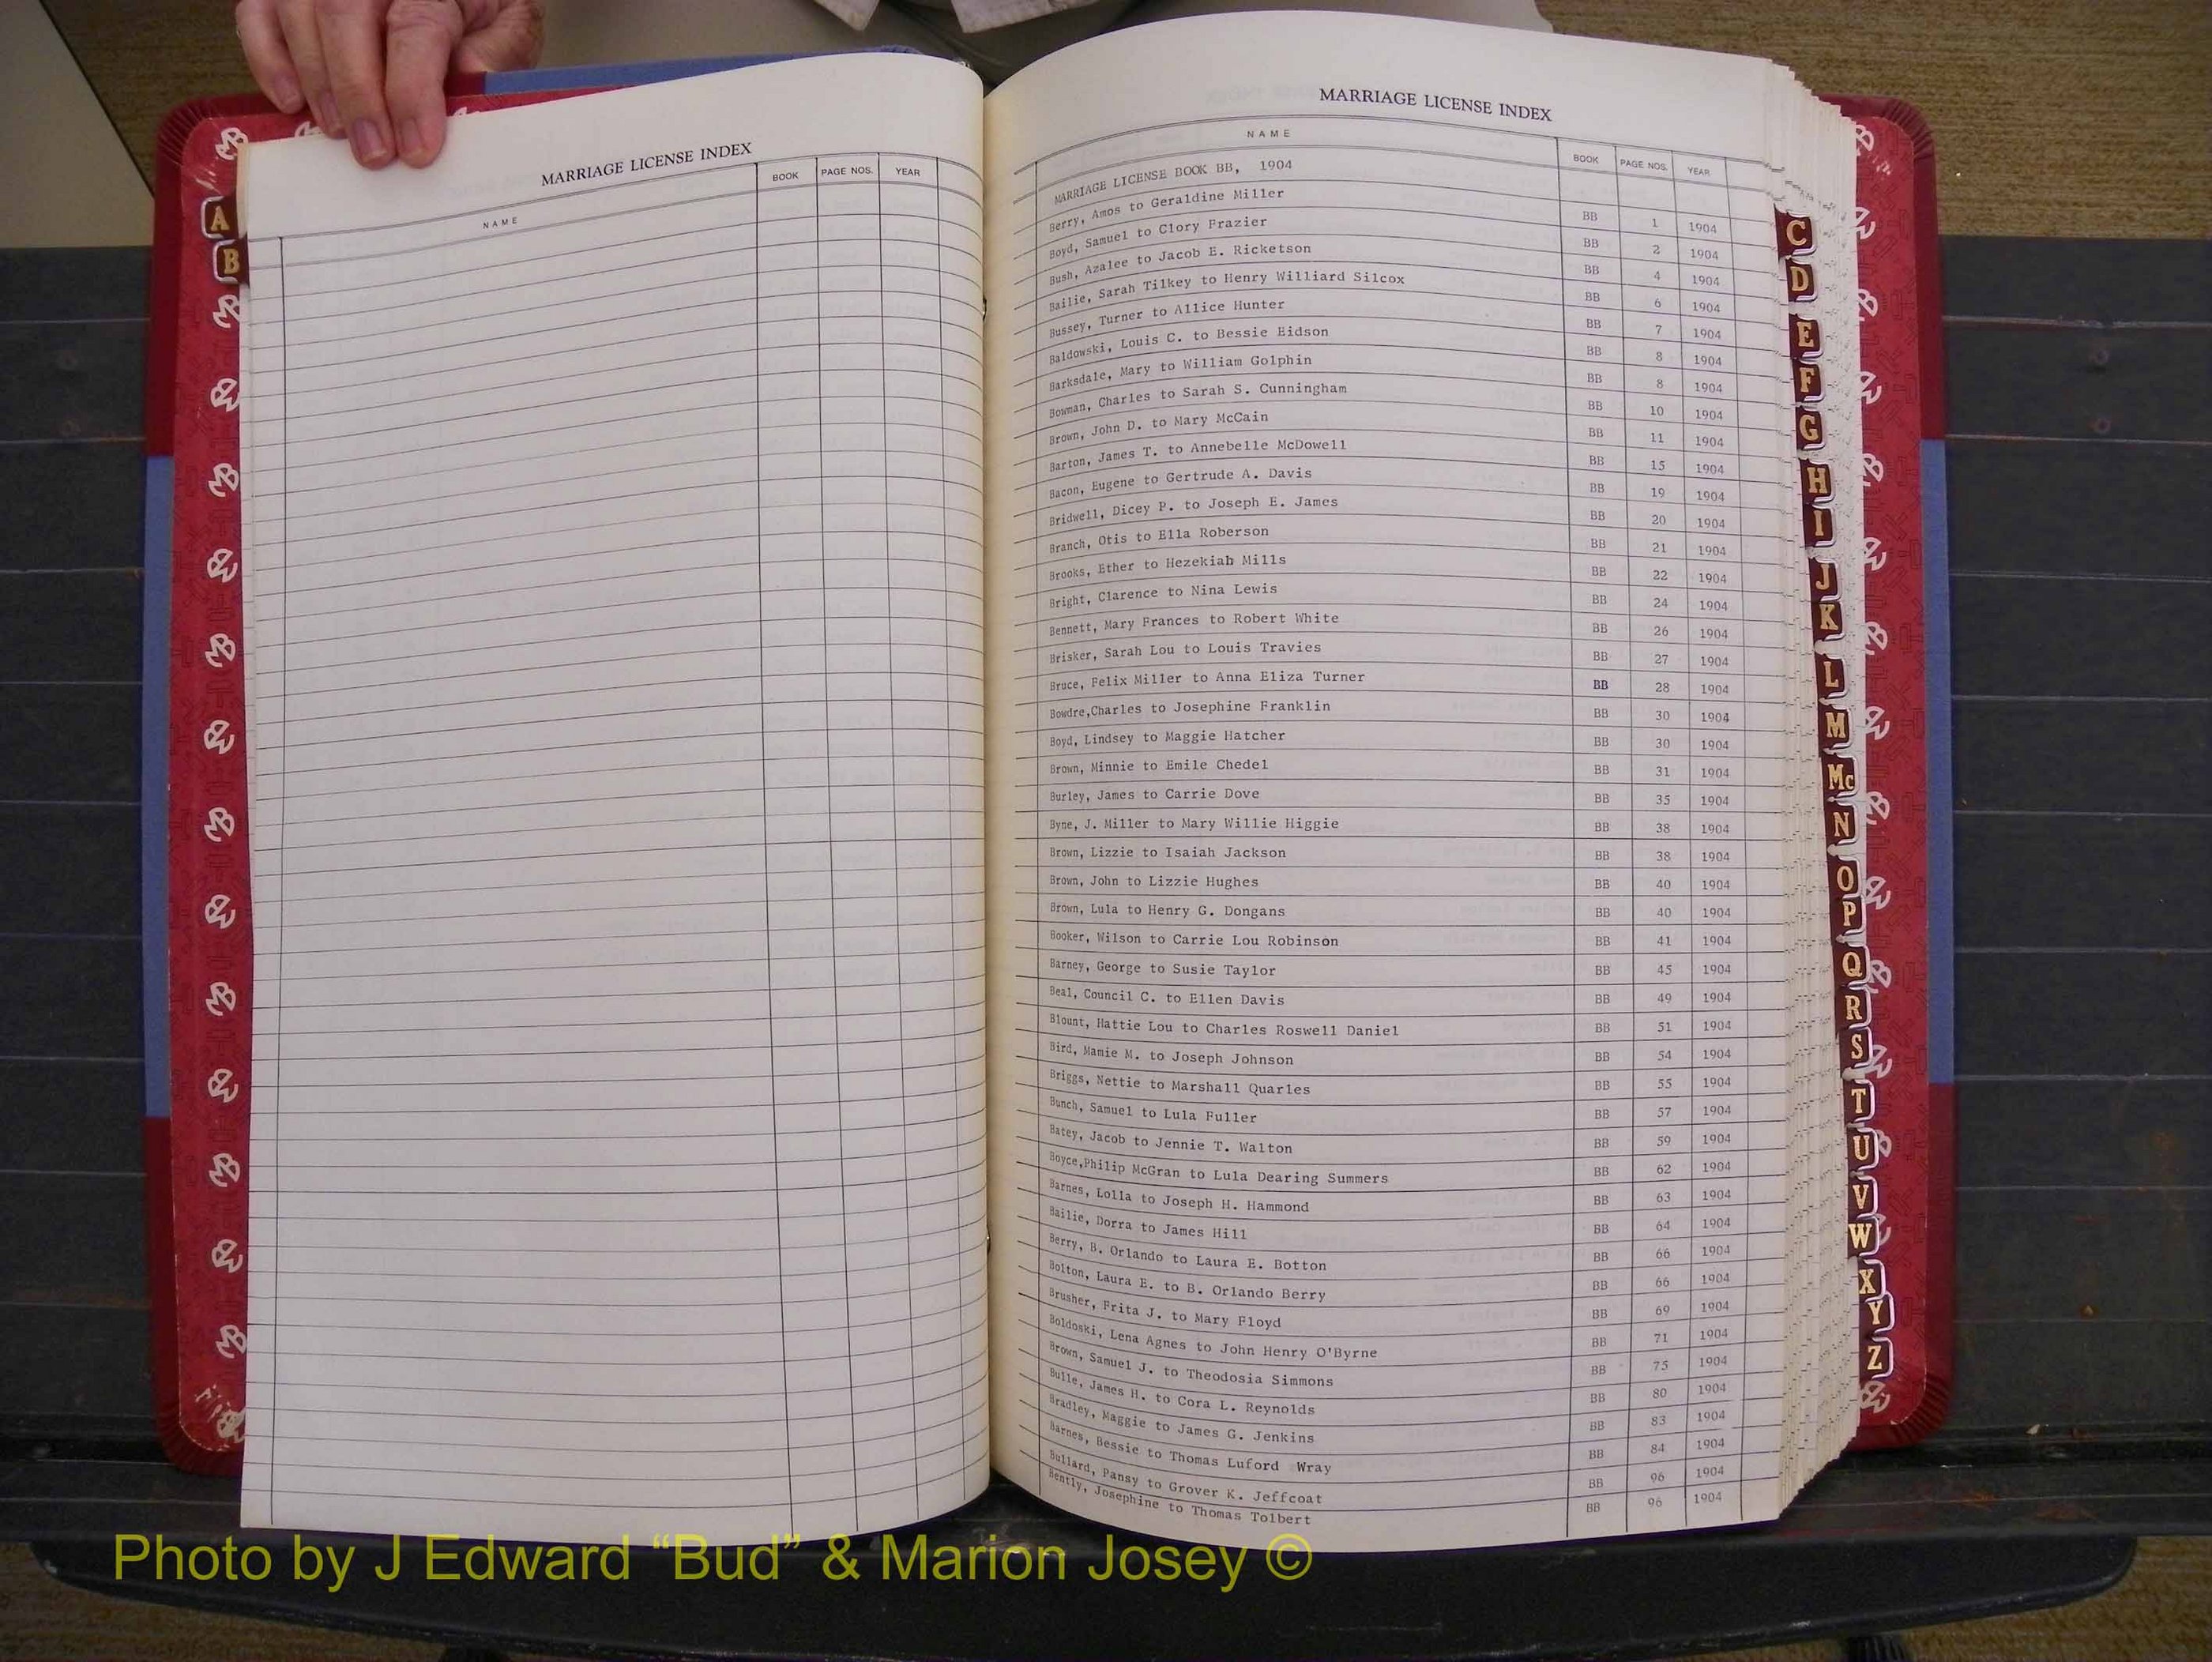 MARRIAGE LICENSE INDEX
NAME BOOK PAGE NOS. YEAR
MARRIAGE LICENSE INDEX
NAME BOOK PAGE NOS. YEAR
MARRIAGE LICENSE BOOK BB, 1904
Berry, Amos to Geraldine Miller BB 1 1904
Boyd, Samuel to Clory Frazier BB 2 1904
Bush, Azalee to Jacob E. Ricketson BB 4 1904
Bailie, Sarah Tilkey to Henry Williard Silcox BB 6 1904
Bussey, Turner to Allice Hunter BB 7 1904
Baldowski, Louis C. to Bessie Eidson BB 8 1904
Barksdale, Mary to William Golphin BB 8 1904
Bowman, Charles to Sarah S. Cunningham BB 10 1904
Brown, John D. to Mary McCain BB 11 1904
Barton, James T. to Annebelle McDowell BB 15 1904
Bacon, Eugene to Gertrude A. Davis BB 19 1904
Bridwell, Dicey P. to Joseph E. James BB 20 1904
Branch, Otis to Ella Roberson BB 21 1904
Brooks, Ether to Hezekiah Mills BB 22 1904
Bright, Clarence to Nina Lewis BB 24 1904
Bennett, Mary Frances to Robert White BB 26 1904
Brisker, Sarah Lou to Louis Travies BB 27 1904
Bruce, Felix Miller to Anna Eliza Turner BB 28 1904
Bowdre,Charles to Josephine Franklin BB 30 1904
Boyd, Lindsey to Maggie Hatcher BB 30 1904
Brown, Minnie to Emile Chedel BB 31 1904
Burley, James to Carrie Dove BB 35 1904
Byne, J. Miller to Mary Willie Higgie BB 38 1904
Brown, Lizzie to Isaiah Jackson BB 38 1904
Brown, John to Lizzie Hughes BB 40 1904
Brown, Lula to Henry G. Dongans BB 40 1904
Booker, Wilson to Carrie Lou Robinson BB 41 1904
Barney, George to Susie Taylor BB 45 1904
Beal, Council C. to Ellen Davis BB 49 1904
Blount, Hattie Lou to Charles Roswell Daniel BB 51 1904
Bird, Mamie M. to Joseph Johnson BB 54 1904
Briggs, Nettie to Marshall Quarles BB 55 1904
Bunch, Samuel to Lula Fuller BB 57 1904
Batey, Jacob to Jennie T. Walton BB 59 1904
Boyce,Philip McGran to Lula Dearing Summers BB 62 1904
Barnes, Lolla to Joseph H. Hammond BB 63 1904
Bailie, Dorra to James Hill BB 64 1904
Berry, B. Orlando to Laura E. Botton BB 66 1904
Bolton, Laura E. to B. Orlando Berry BB 66 1904
Brusher, Frita J. to Mary Floyd BB 69 1904
Boldoski, Lena Agnes to John Henry O'Byrne BB 71 1904
Brown, Samuel J. to Theodosia Simmons BB 75 1904
Bulle, James H. to Cora L. Reynolds BB 80 1904
Bradley, Maggie to James G. Jenkins BB 83 1904
Barnes, Bessie to Thomas Luford Wray BB 84 1904
Bullard, Pansy to Grover K. Jeffcoat BB 96 1904
Bently, Josephine to Thomas Tolbert BB 96 1904
A
B
C
D
E
F
G
H
I
J
K
L
M
Mc
N
O
P
Q
R
S
T
U
V
W
X
Y
Z
Photo by J Edward “Bud” & Marion Josey ©